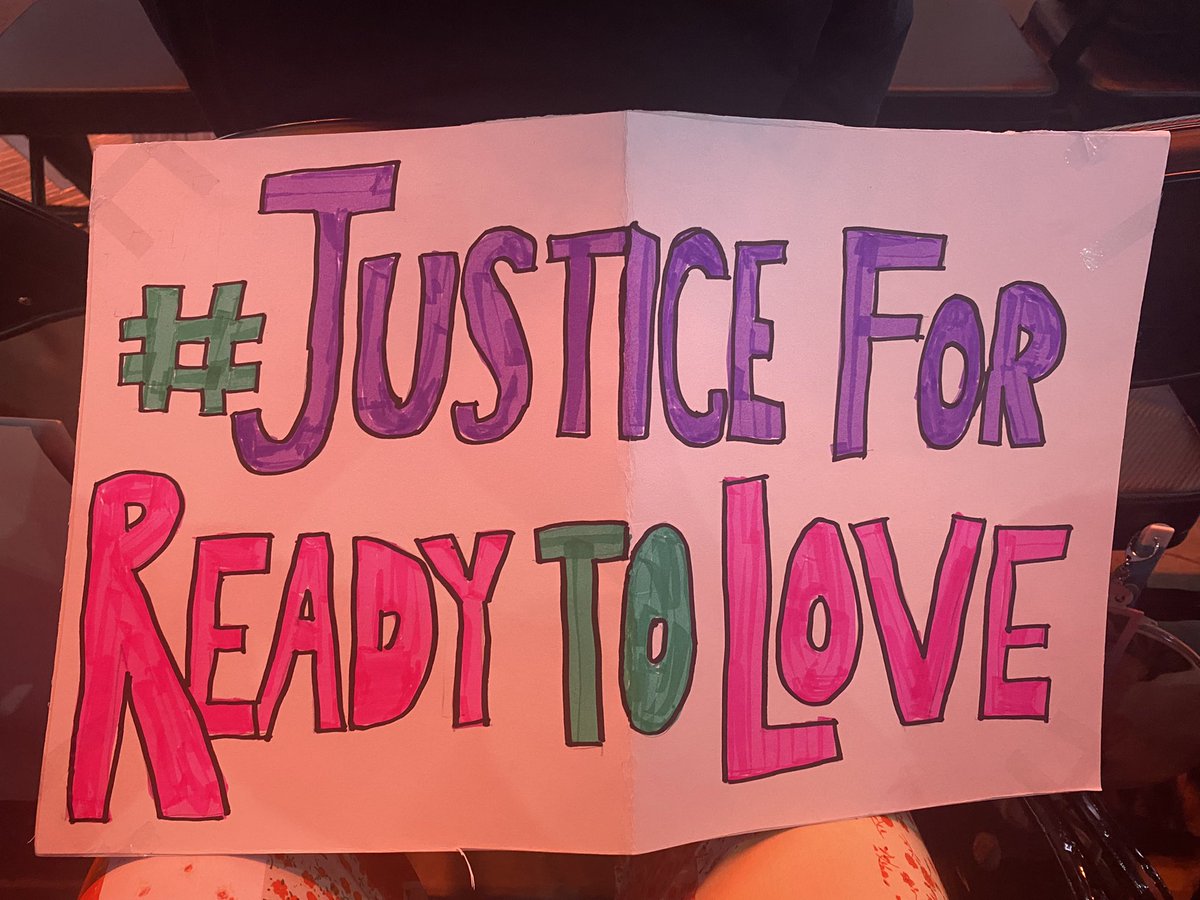 #JUSTICE FOR
READY TO LOVE